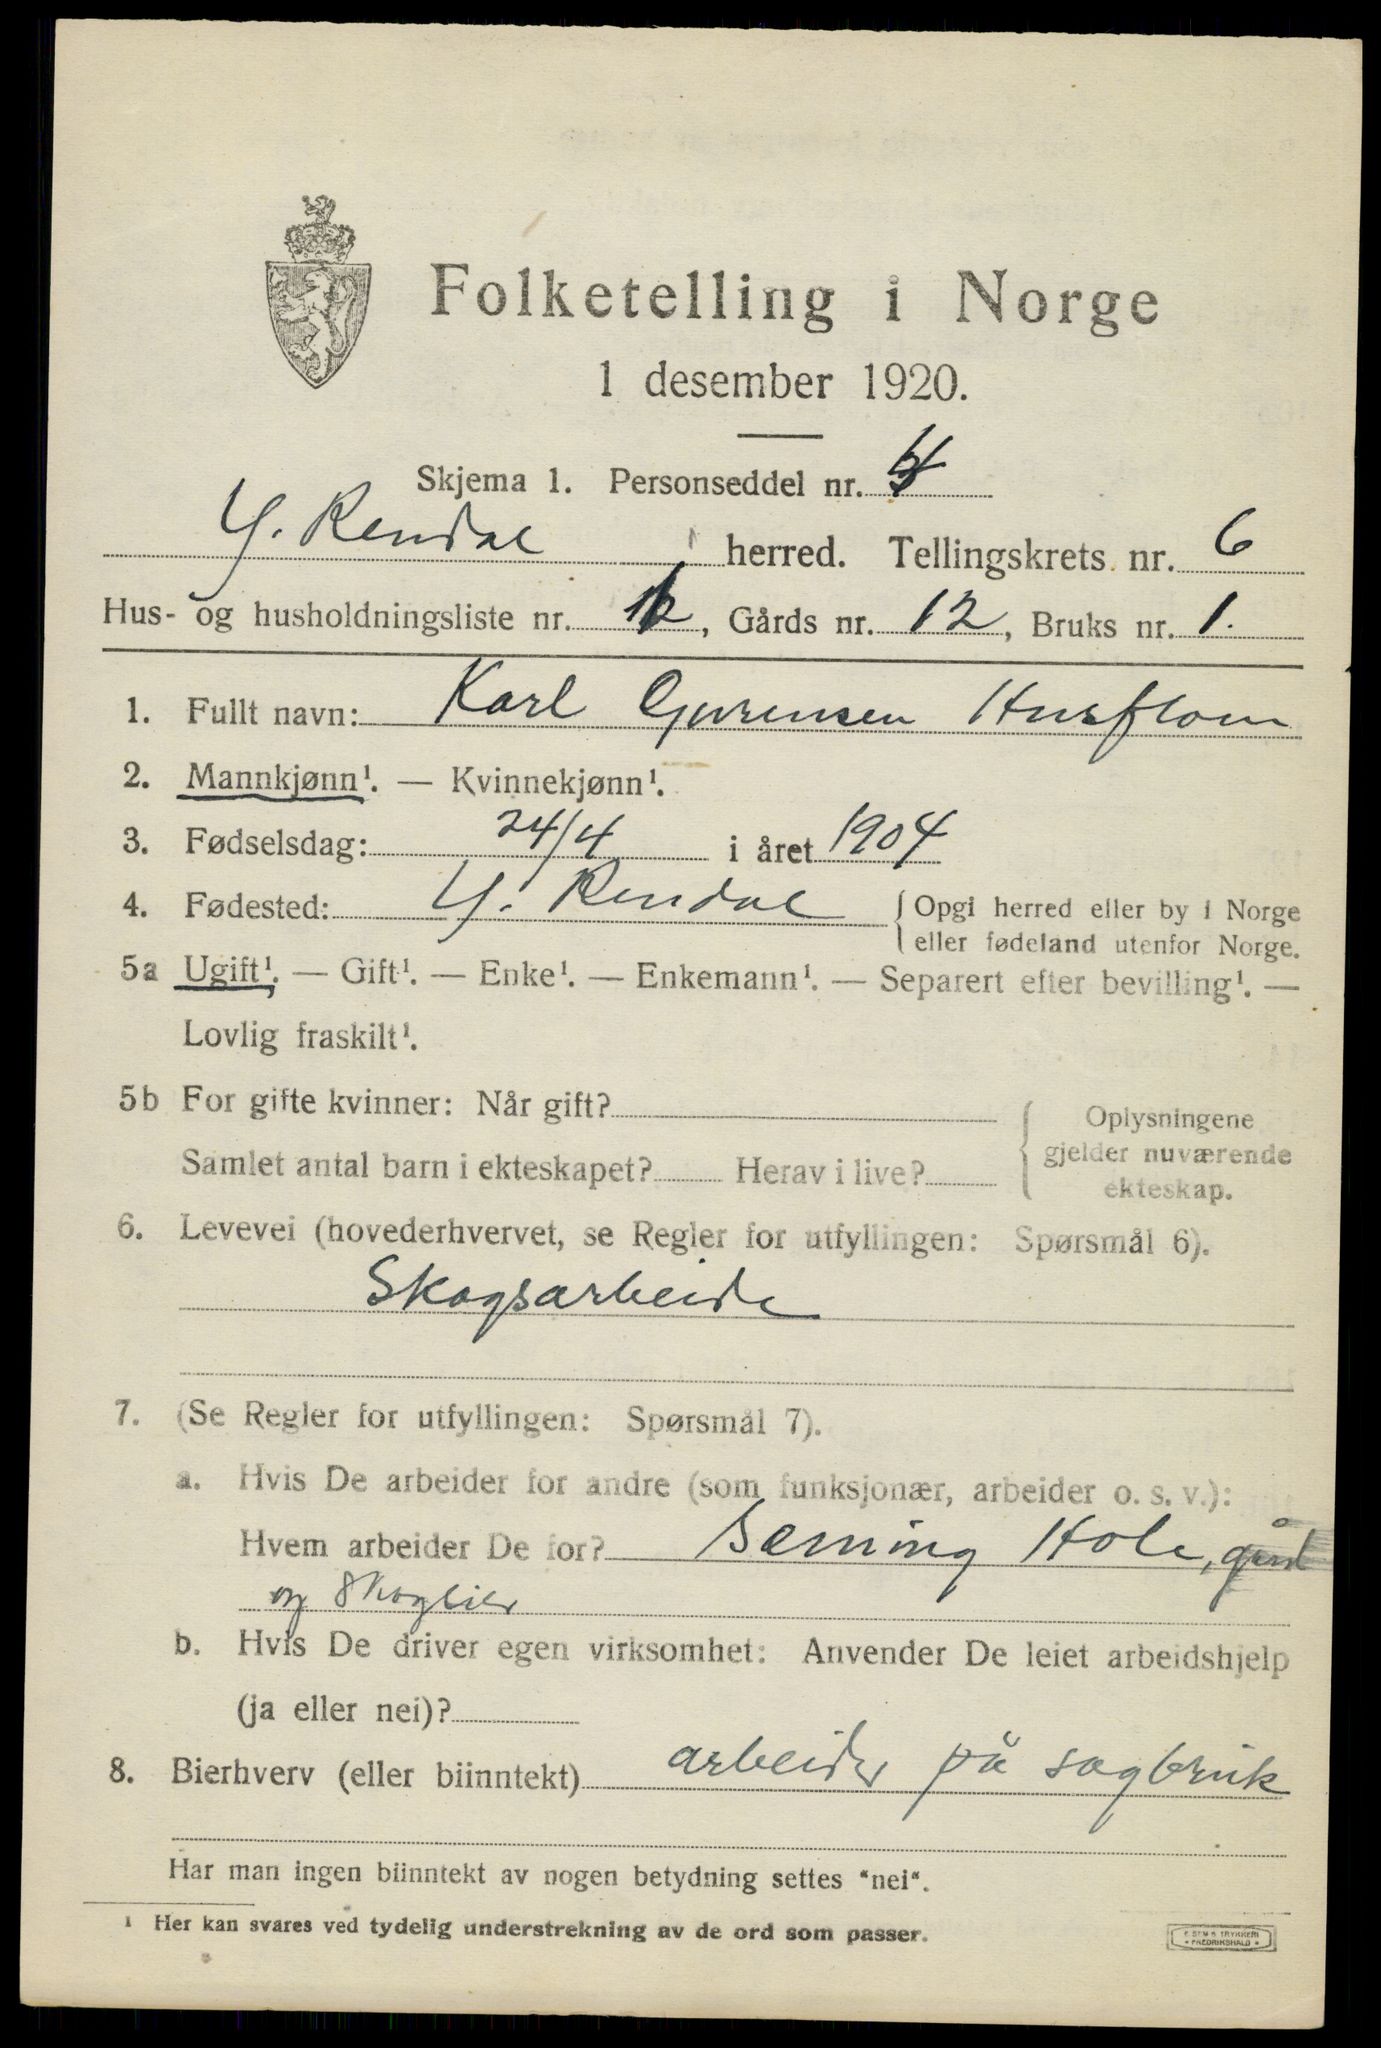 Folketelling i Norge
1 desember 1920.
Skjema 1. Personseddel nr. 4
Y. Rendal herred. Tellingskrets nr. 6
Hus- og husholdningsliste nr. 12, Gårds nr. 12, Bruks nr. 1.
1. Fullt navn: Karl
2. Mannkjønn¹. — Kvinnekjønn¹.
3. Fødselsdag: 24/4 i året 1904
4. Fødested: Y. Rendal { Opgi herred eller by i Norge
eller fødeland utenfor Norge.
5a Ugift¹. — Gift¹. — Enke¹. — Enkemann¹. — Separert efter bevilling¹. —
Lovlig fraskilt¹.
5b For gifte kvinner: Når gift? { Oplysningene
gjelder nuværende
ekteskap.
Samlet antal barn i ekteskapet? Herav i live?
6. Levevei (hovederhvervet, se Regler for utfyllingen: Spørsmål 6).
Skogsarbeide
7. (Se Regler for utfyllingen: Spørsmål 7).
a. Hvis De arbeider for andre (som funksjonær, arbeider o. s. v.):
Hvem arbeider De for? Hole, gård
og Skogeier
b. Hvis De driver egen virksomhet: Anvender De leiet arbeidshjelp
(ja eller nei)?
8. Bierhverv (eller biinntekt) arbeider på sagbruk
Har man ingen biinntekt av nogen betydning settes "nei".
¹ Her kan svares ved tydelig understrekning av de ord som passer.
E. SEM'S TRYKKERI
FREDRIKSHALD